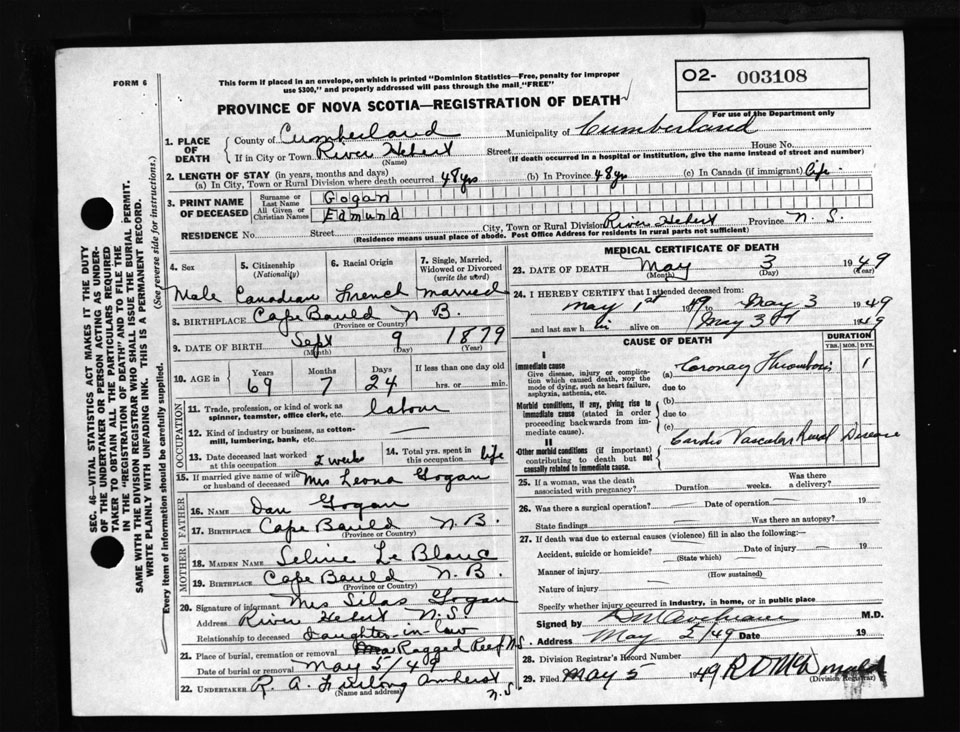 FORM 6
This form if placed in an envelope, on which is printed "Dominion Statistics—Free, penalty for improper
use $300," and properly addressed will pass through the mail "FREE"
O2- 003108
For use of the Department only
PROVINCE OF NOVA SCOTIA—REGISTRATION OF DEATH
1. PLACE OF DEATH
County of Cumberland Municipality of Cumberland
If in City or Town River Hebert Street House No.
(Name) (If death occurred in a hospital or institution, give the name instead of street and number)
2. LENGTH OF STAY (in years, months and days)
(a) In City, Town or Rural Division where death occurred 48 yrs (b) In Province 48 yrs (c) In Canada (if immigrant) life
3. PRINT NAME OF DECEASED
Surname or Last Name Gogan
All Given or Christian Names Edmund
RESIDENCE No. Street City, Town or Rural Division River Hebert Province N. S.
(Residence means usual place of abode. Post Office Address for residents in rural parts not sufficient)
4. Sex
Male
5. Citizenship (Nationality)
Canadian
6. Racial Origin
French
7. Single, Married, Widowed or Divorced (write the word)
Married
8. BIRTHPLACE Cape Bauld N. B.
(Province or Country)
9. DATE OF BIRTH Sept 9 1879
(Month) (Day) (Year)
10. AGE in Years Months Days If less than one day old
69 7 24 hrs. or min.
OCCUPATION
11. Trade, profession, or kind of work as spinner, teamster, office clerk, etc. labour
12. Kind of industry or business, as cotton-mill, lumbering, bank, etc.
13. Date deceased last worked at this occupation 2 weeks
14. Total yrs. spent in this occupation life
15. If married give name of wife or husband of deceased Mrs Leona Gogan
FATHER
16. NAME Dan Gogan
17. BIRTHPLACE Cape Bauld N. B.
(Province or Country)
MOTHER
18. MAIDEN NAME Seline Le Blanc
19. BIRTHPLACE Cape Bauld N. B.
(Province or Country)
20. Signature of informant Mrs Silas Gogan
Address River Hebert N. S.
Relationship to deceased Daughter-in-law
21. Place of burial, cremation or removal Ragged Reef N.S.
Date of burial or removal May 5/49
22. UNDERTAKER R. A. Furlong Amherst N. S
(Name and address)
MEDICAL CERTIFICATE OF DEATH
23. DATE OF DEATH May 3 1949
(Month) (Day) (Year)
24. I HEREBY CERTIFY that I attended deceased from:
May 1st 1949 to May 3 1949
and last saw h im alive on May 3rd 1949
CAUSE OF DEATH
DURATION
YRS. MOS. DYS.
I
Immediate cause
Give disease, injury or complication which caused death, NOT the mode of dying, such as heart failure, asphyxia, asthenia, etc.
(a) Coronary Thrombosis 1
due to
Morbid conditions, if any, giving rise to immediate cause (stated in order proceeding backwards from immediate cause).
(b)
due to
(c)
II
Other morbid conditions (if important) contributing to death but not causally related to immediate cause.
Cardio Vascular Renal Disease
25. If a woman, was the death associated with pregnancy? Duration weeks. Was there a delivery?
26. Was there a surgical operation? Date of operation 19
State findings Was there an autopsy?
27. If death was due to external causes (violence) fill in also the following:—
Accident, suicide or homicide? Date of injury 19
(State which)
Manner of injury
(How sustained)
Nature of injury
Specify whether injury occurred in industry, in home, or in public place
Signed by M.D.
Address May 5/49 Date 19
28. Division Registrar's Record Number
29. Filed May 5 1949 R D McDonald
(Division Registrar)
SEC. 46—VITAL STATISTICS ACT MAKES IT THE DUTY
OF THE UNDERTAKER OR PERSON ACTING AS UNDER-
TAKER TO OBTAIN ALL THE PARTICULARS REQUIRED
IN THE "REGISTRATION OF DEATH" AND TO FILE THE
SAME WITH THE DIVISION REGISTRAR WHO SHALL ISSUE THE BURIAL PERMIT.
WRITE PLAINLY WITH UNFADING INK. THIS IS A PERMANENT RECORD.
Every item of information should be carefully supplied. (See reverse side for instructions.)